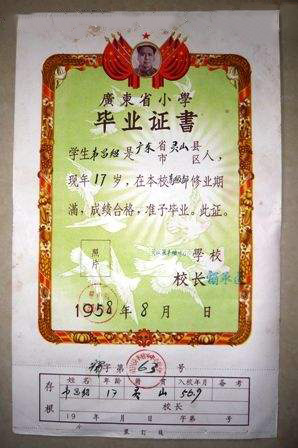 廣東省小學
毕业证書
学生韦昌绍是广东省灵山县人，
市 区
现年17岁，在本校高级部修业期
满，成绩合格，准予毕业。此证。
照
片
學校
校长
1958年8月 日
字第63号
存根
姓名 年龄 籍貫 入校年月 备考
17 灵山 56.9
校长
19 年 月 日 字第 号
装訂线